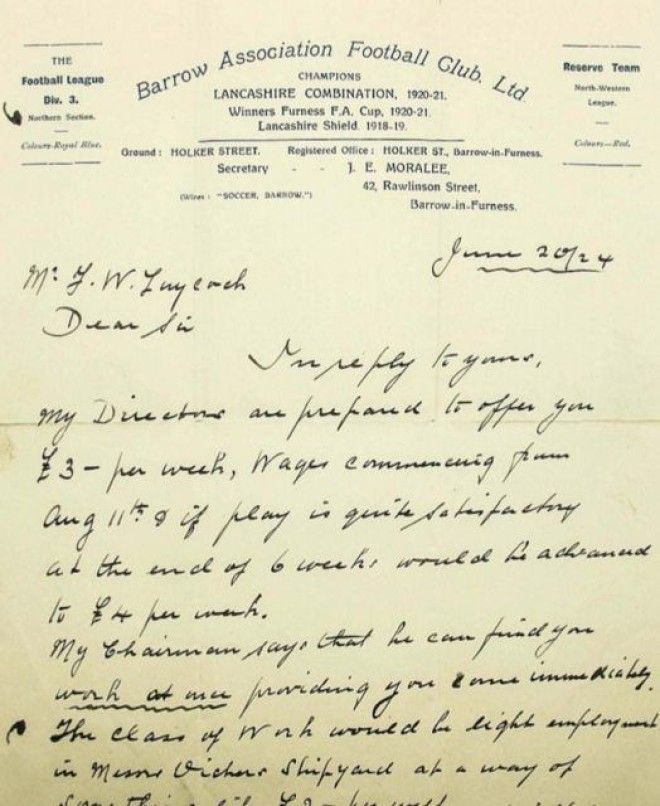 THE
Football League
Div. 3.
Northern Section.
Colours-Royal Blue.
Barrow Association Football Club, Ltd
CHAMPIONS
LANCASHIRE COMBINATION, 1920-21.
Winners Furness F.A. Cup, 1920-21.
Lancashire Shield, 1918-19.
Reserve Team
North-Western
League.
Colours—Red.
Ground: HOLKER STREET. Registered Office: HOLKER ST., Barrow-in-Furness.
Secretary - - J. E. MORALEE,
(Wires: "SOCCER, BARROW.") 42, Rawlinson Street,
Barrow-in-Furness.
June 20/24
Mr F. W. Laycock
Dear Sir
In reply to yours,
My Directors are prepared to offer you
£3 - per week, Wages commencing from
Aug 11th & if play is quite satisfactory
at the end of 6 weeks would be advanced
to £4 per week.
My Chairman says that he can find you
work at once providing you come immediately.
The class of Work would be light employment
in Messrs Vickers Shipyard at a way of
something like £2 - per